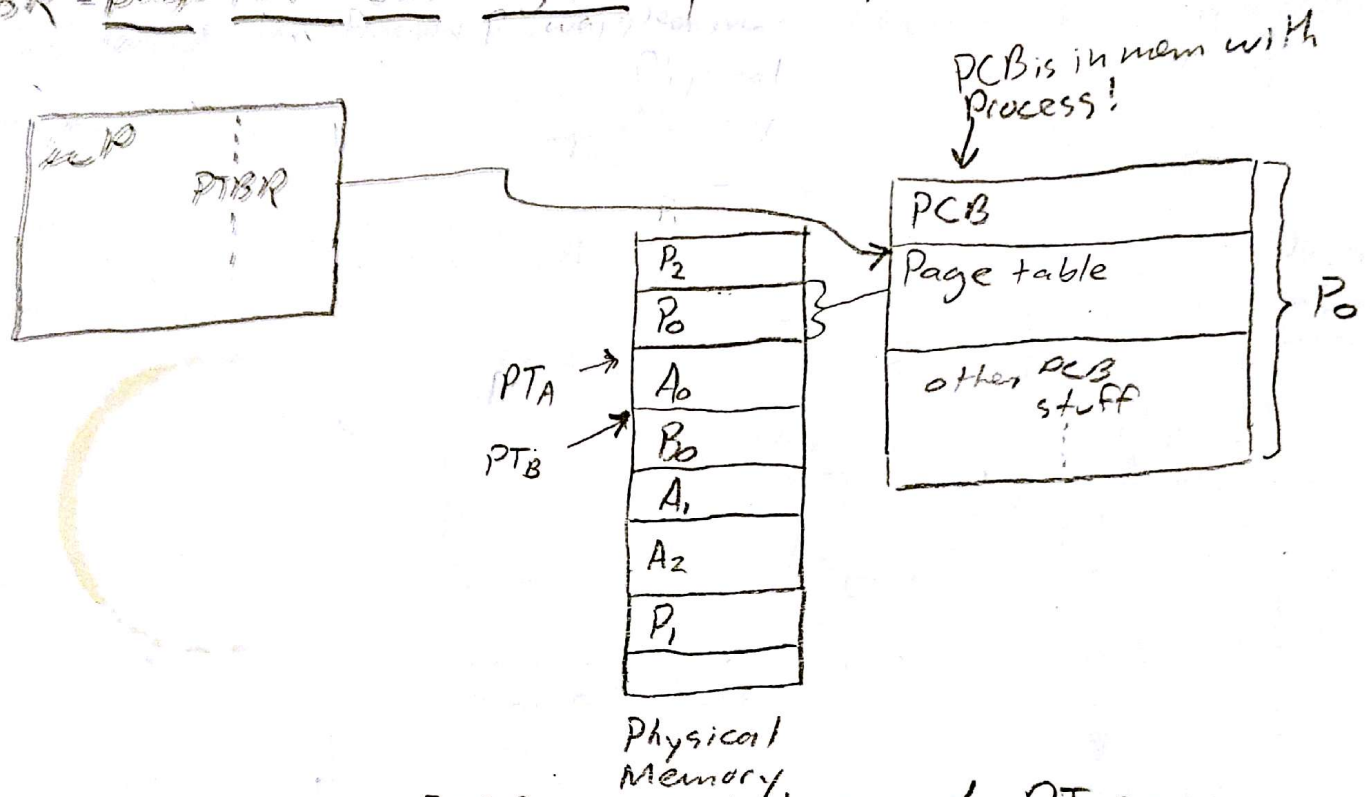 PCB is in mem with
Process!
PTBR
PCB
Page table
other PCB
stuff
P0
P2
P0
PTA
A0
PTB
B0
A1
A2
P1
Physical
Memory.
PT